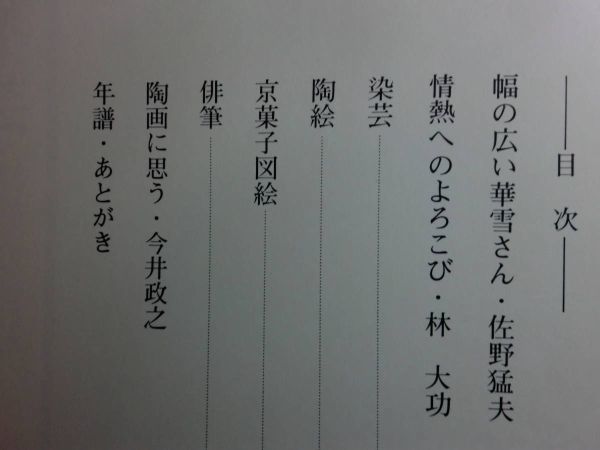 目次
幅の広い華雪さん・佐野猛夫
情熱へのよろこび・林 大功
染芸
陶絵
京菓子図絵
俳筆
陶画に思う・今井政之
年譜・あとがき